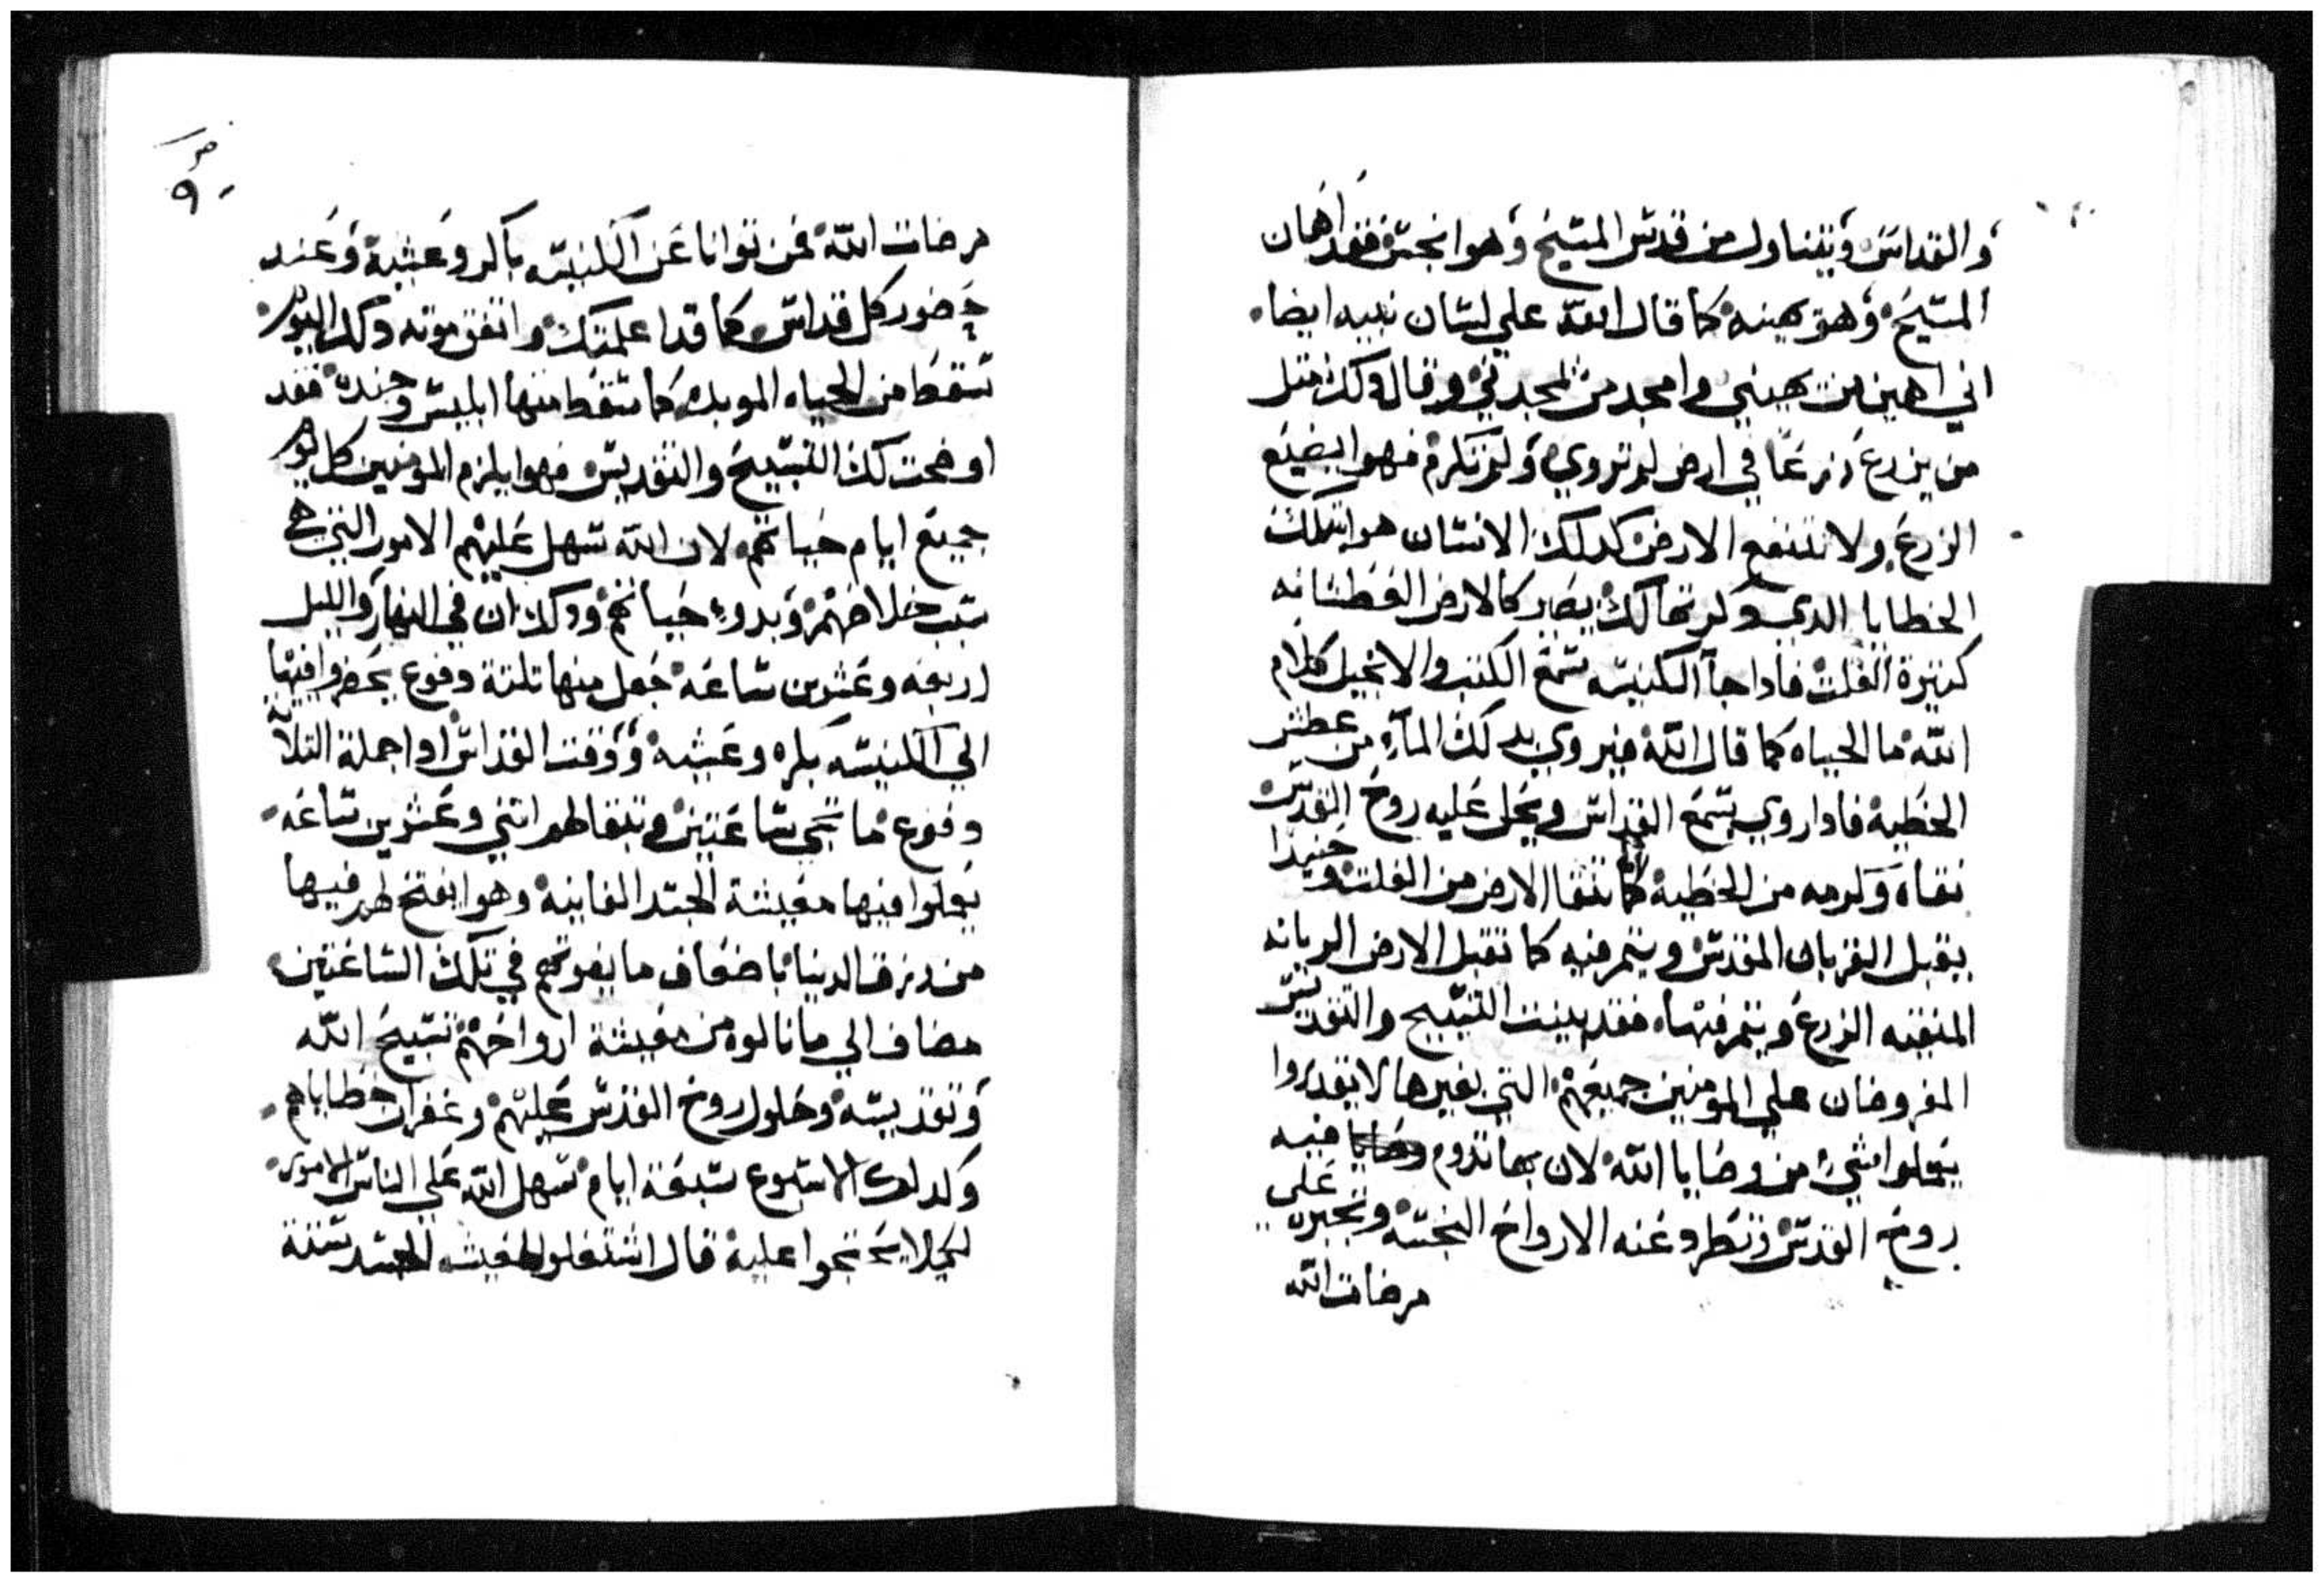 والقداس ويتناول من قدس المسيح وهوا نجس فقد اهان
المسيح وهو يهينه كما قال الله علي لسان نبيه ايضا
اني اهين من يهينني وامجد من يمجدني وقال وكذا متل
من يزرع زرعا في ارض لم تروي ولم تكرم فهوا يضيع
الزرع ولا تنتفع الارض كدلك الانسان هوا بتلك
الخطايا الدي يصير كالارض العطشانه
كتيرة الفلت فادا جآ الكنيسه تسمع الكتب والانجيل كلام
الله ما الحياه كما قال الله فيروي بدلك المآء من عطش
الخطية فادا روي يسمع القداس ويحل عليه روح القدس
نقاه وكرمه من الخطية كما تنقا الارض من الفلت وحنيدا
يقبل القربان المقدس ويتمر فيه كما تقبل الارض الريانه
المنقيه الزرع ويتمر فيها فقد بينت التسبيح والتقديس
المفروضان علي المومنين جميعهم التي بغيرها لا يقدروا
يعملوا شيء من وصايا الله لان بها تدوم فيه
روح القدس وتطرد عنه الارواح النجسه وتجبره علي
مرضات الله
٩٠
مرضات الله فمن توانا عن الكنيسه باكر وعشية وعند
حضور كل قداس كما قد اعلمتك واتفق موته دلك اليوم
سقط من الحياه الموبده كما سقط منها ابليس وجنده فقد
اوضحت لك التسبيح والتقديس فهوا يلزم المومنين كل يوم
جميع ايام حياتهم لان الله سهل عليهم الامور التي هي
سبب خلاصهم وبدوء حياتهم ودلك ان في النهار والليل
اربعه وعشرين ساعه جعل منها تلتة دفوع يحضروا فيها
الي الكنيسه بكره وعشيه ووقت القداس ادا جملة التلآ
دفوع ما تجي ساعتين وتبقا لهم اتني وعشرين ساعه
يعملوا فيها معيشة الجسد الفانيه وهوا يفتح لهم فيها
من رزق الدنيا باضعاف ما يفوتهم في تلك الساعتين
مضاف الي ما نالوه من معيشة ارواحهم تسبيح الله
وتقديسه وحلول روح القدس عليهم وغفران خطاياهم
وكدلك الاسبوع سبعة ايام سهل الله علي الناس الامور
لكيلا يحتجوا عليه قال اشتغلوا لمعيشه الجسد ستة